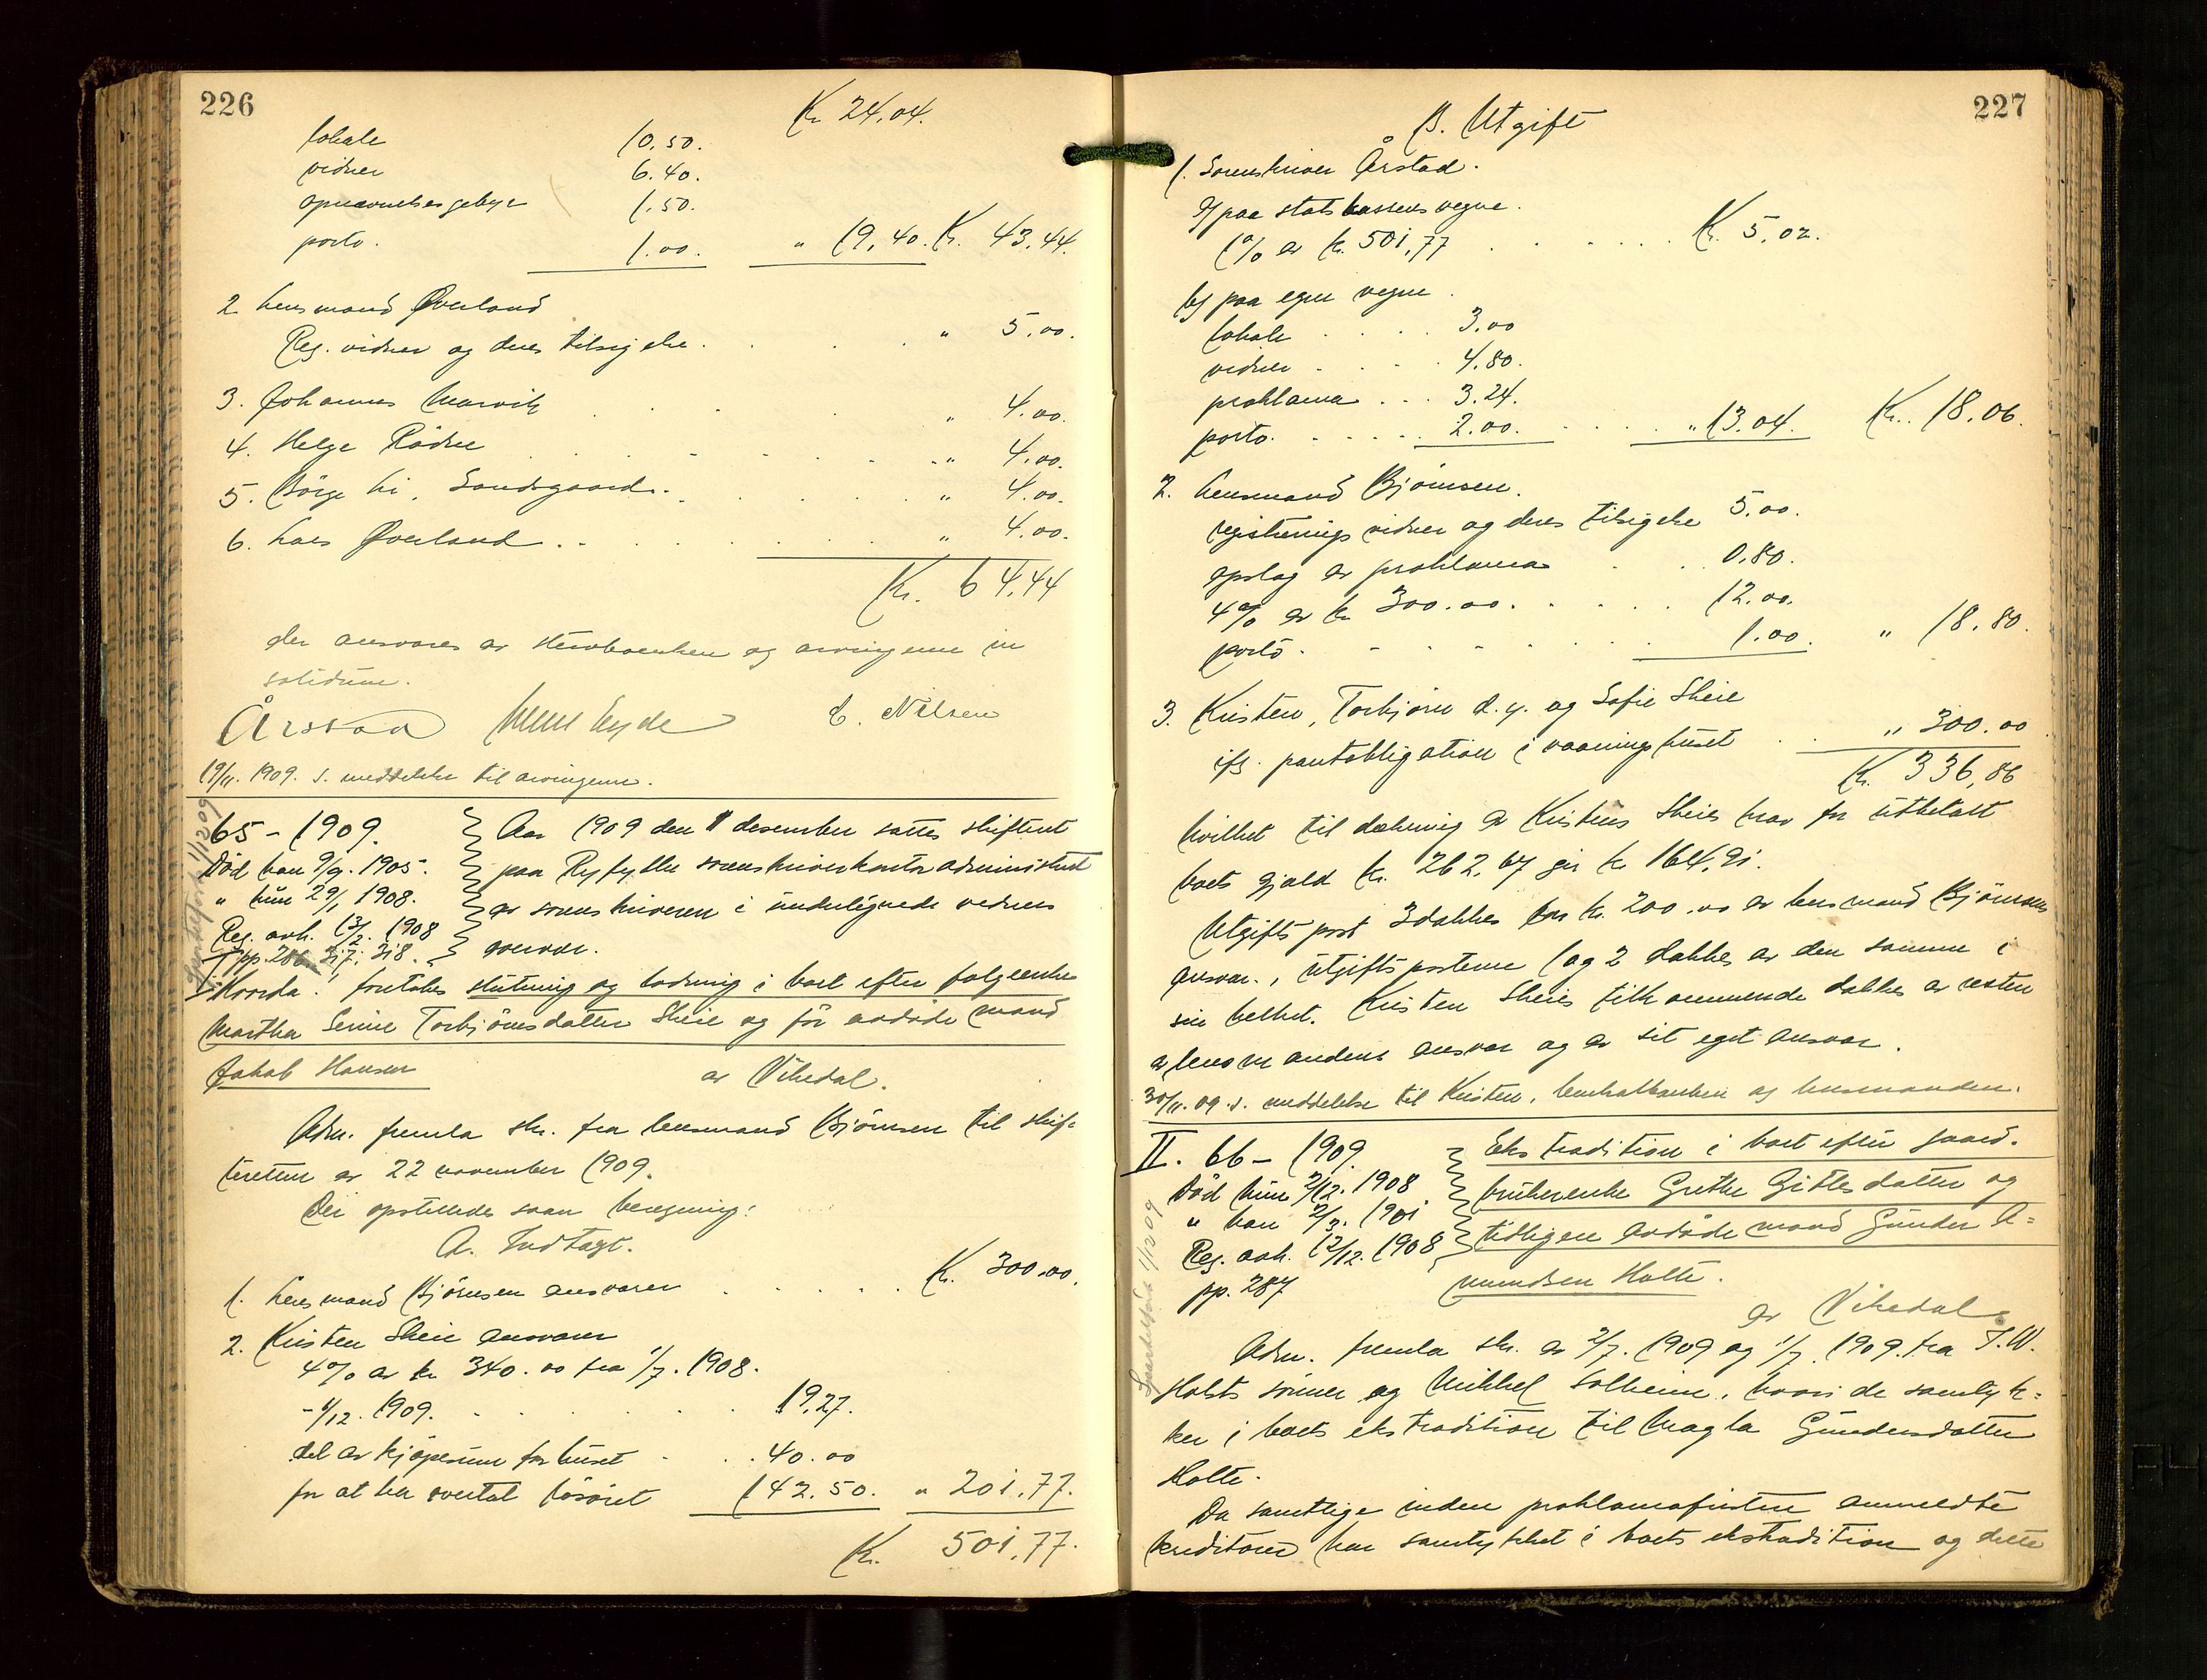 226
Kr 24.04.
lokale 10.50.
vidner 6.40.
opnævnelsesgebyr 1.50.
porto. 1.00. " 19.40. Kr. 43.44.
2 Lensmand Øverland
Reg. vidner og deres tilsigelse . . . " 5.00.
3. Johannes Marvik . . . " 4.00.
4. Helge Rødne . . . " 4.00.
5. Børge Sandsgaard . . . " 4.00.
6. Lars Øverland . . . " 4.00.
Kr. 64.44
der ansvares av stervboenken og arvingerne in
solidum.
Årstad E. Nilsen
19/11. 1909. s. meddelelse til arvingerne.
65 - 1909.
Død han 9/9. 1905.
" hun 29/1 1908.
Reg. avh. 13/2. 1908
pp. 286. 317. 318.
Aar 1909 den 1 desember sattes skifteret
paa Ryfylke sorenskriverkontor administrert
av sorenskriveren i underlignede vidners
overvær.
Hvorda: foretokes slutning og lodning i boet efter følgeenke
Martha Serine Torbjørnsdatter Skeie og før avdøde mand
Jakob Hansen av Vikedal.
Adm. fremla skr. fra lensmand Bjørnsen til skif-
teretten av 22 november 1909.
Der opstilledes saan beregning:
A. Indtægt.
1. Lensmand Bjørnsen ansvarer . . . Kr. 300.00.
2. Kristen Skeie ansvarer
4% av kr 340.00 fra 1/7. 1908.
- 1/12. 1909. . . . 19.27.
del av kjøpesum for huset . . 40.00
for at ha overtat løsøret 142.50. " 201.77.
Kr. 501.77.
227
B. Utgift
1. Sorenskriver Årstad.
a/ paa statskassens vegne.
1% av kr. 501,77 . . . Kr. 5.02.
b/ paa egne vegne.
lokale . . . 3.00
vidner . . . 4.80.
proklama . . . 3.24.
porto. . . . 2.00. . . . " 13.04. Kr. 18.06.
2. Lensmand Bjørnsen.
registrerings vidner og deres tilsigelse 5.00.
opslag av proklama . . 0.80.
4% av kr 300.00. . . . 12.00.
porto. . . . 1.00. " 18.80.
3. Kristen, Torbjørn d. y. og Sofie Skeie
ifg. pantobligation i vaaningshuset . . " 300.00
Kr. 336,86
hvilket til dækning av Kristens Skeies krav for utbetalt
boets gjæld kr. 262,67 gir kr 164,91.
Utgifts post 3 dækkes for kr. 200.00 av lensmand Bjørnsens
ansvar., utgiftsposterne 1 og 2 dækkes av den samme i
sin helhet. Kristen Skeies tilkommende dækkes av resten
av lensmandens ansvar og av sit eget ansvar.
30/11. 09. s. meddelelse til Kristen, Centralbanken og lensmanden.
II. 66 - 1909.
Død hun 2/12. 1908
" han 2/3. 1901
Reg. avh. 12/12. 1908
pp. 287
Ekstradition i boet efter gaard-
brukerenke Grethe Gitlesdatter og
tidligere avdøde mand Gunder A=
mundsen Holte.
av Vikedal.
Adm. fremla skr. av 2/7. 1909 og 1/7. 1909. fra T. W.
Holsts sønner og Mikkel Solheim, hvori de samtyk=
ker i boets ekstradition til Magla Gundersdatter
Holte.
Da samtlige inden proklamafristen anmeldte
kreditorer har samtykket i boets ekstradition og dette